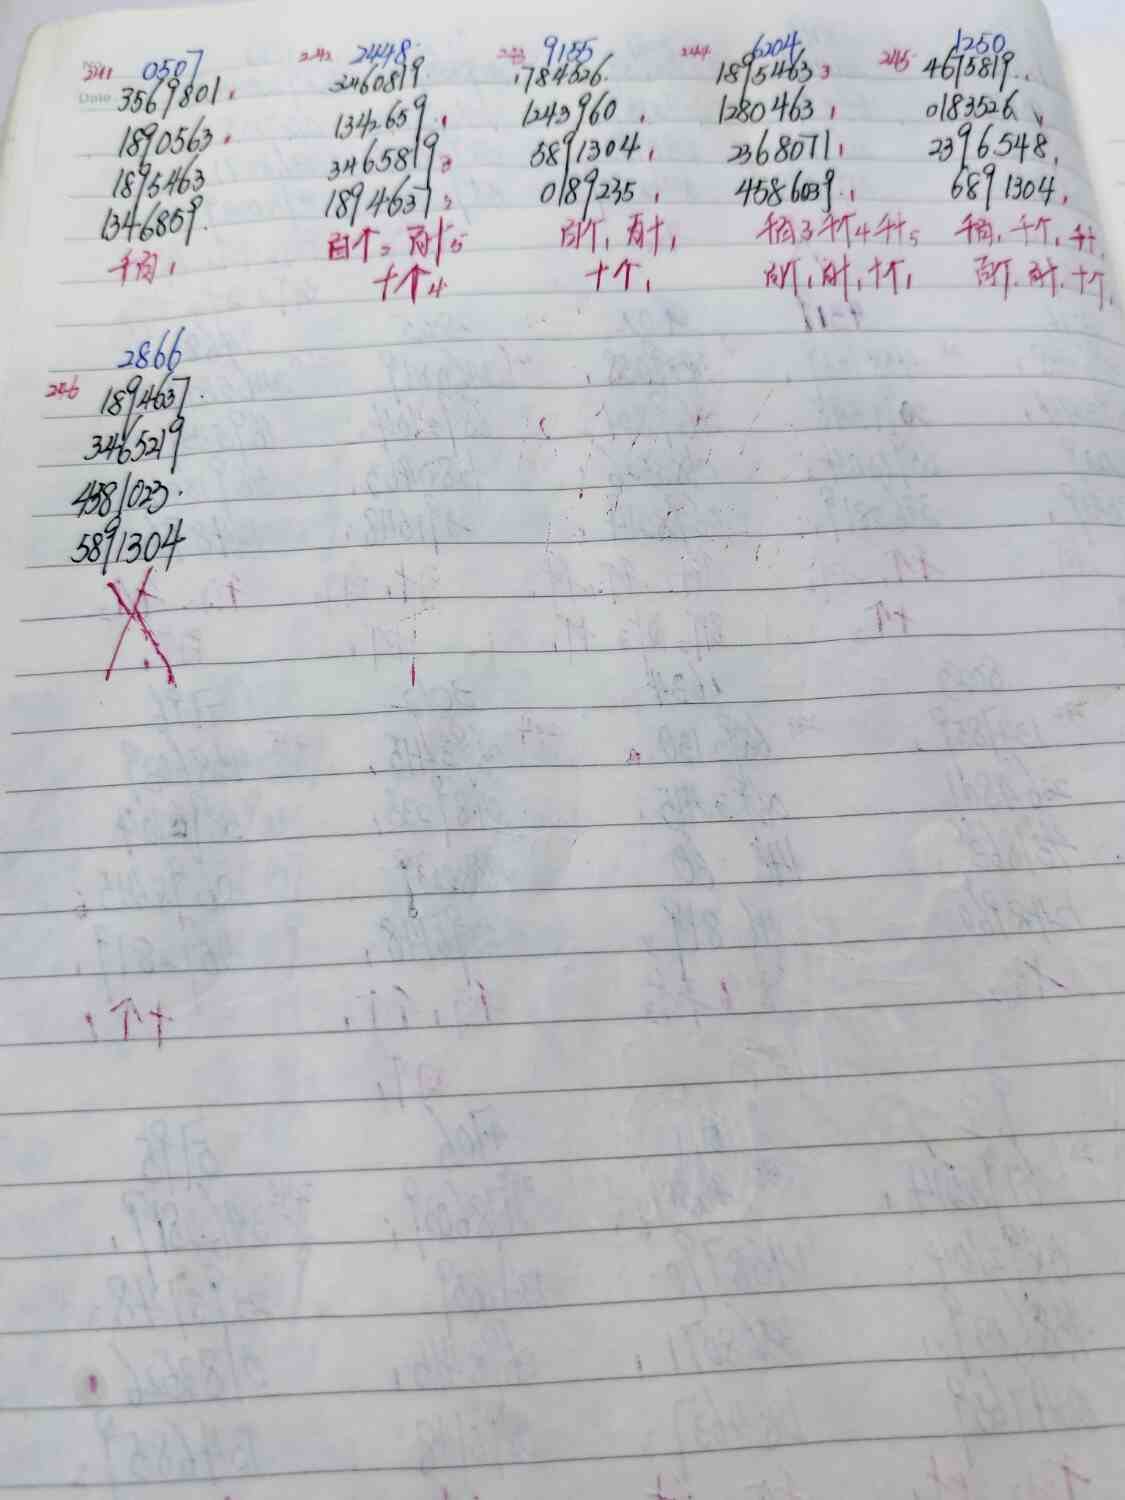 241 0507
Date 3569801
1890563
1895463
1346859
千百1
242 2448
3460819
1342659
3465819
1894637
百个3 百十5
十个4
243 9155
1784626
1243960
5891304
0189235
百个1 百十1
十个1
244 6204
1895463
1280463
2368071
4586039
千百3 千个4 千十5
百个1 百十1 十个1
245 1250
4675819
0183526
2396548
6891304
千百1 千个1 千十
百个 百十 十个
2866
246 1894637
3465219
4581023
5891304